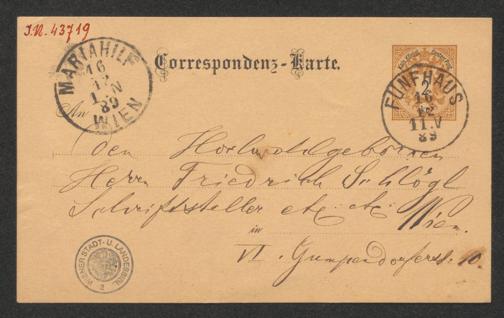 J.N. 43719
MARIAHILF
16
12
1.N
89
WIEN
Correspondenz-Karte.
FÜNFHAUS
2
16
12
11.V
89
An
den Hochwohlgeborenen
Herrn Friedrich Schlögl
Schriftsteller etc. etc. Wien.
in
VI. Gumpendorferstr. 10.
WIENER STADT- U. LANDESBIBL.